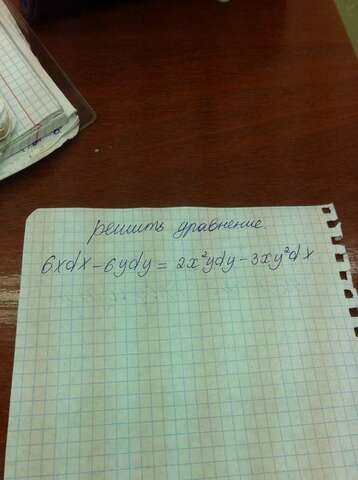 решить уравнение.
6xdx - 6ydy = 2x²ydy - 3xy²dx